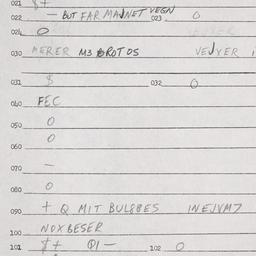 021 $ +
022 — BUT FAR MAJNET VEGN 023 O
024 O
030 MERER M3 BROT OS VEJYER
031 $ 032 O
040 FEC
050 O
O
060
070 —
080 O
090 + Q MIT BULBBES INEJVM7
100 NOXBESER
101 $ + Q1 — 102 O